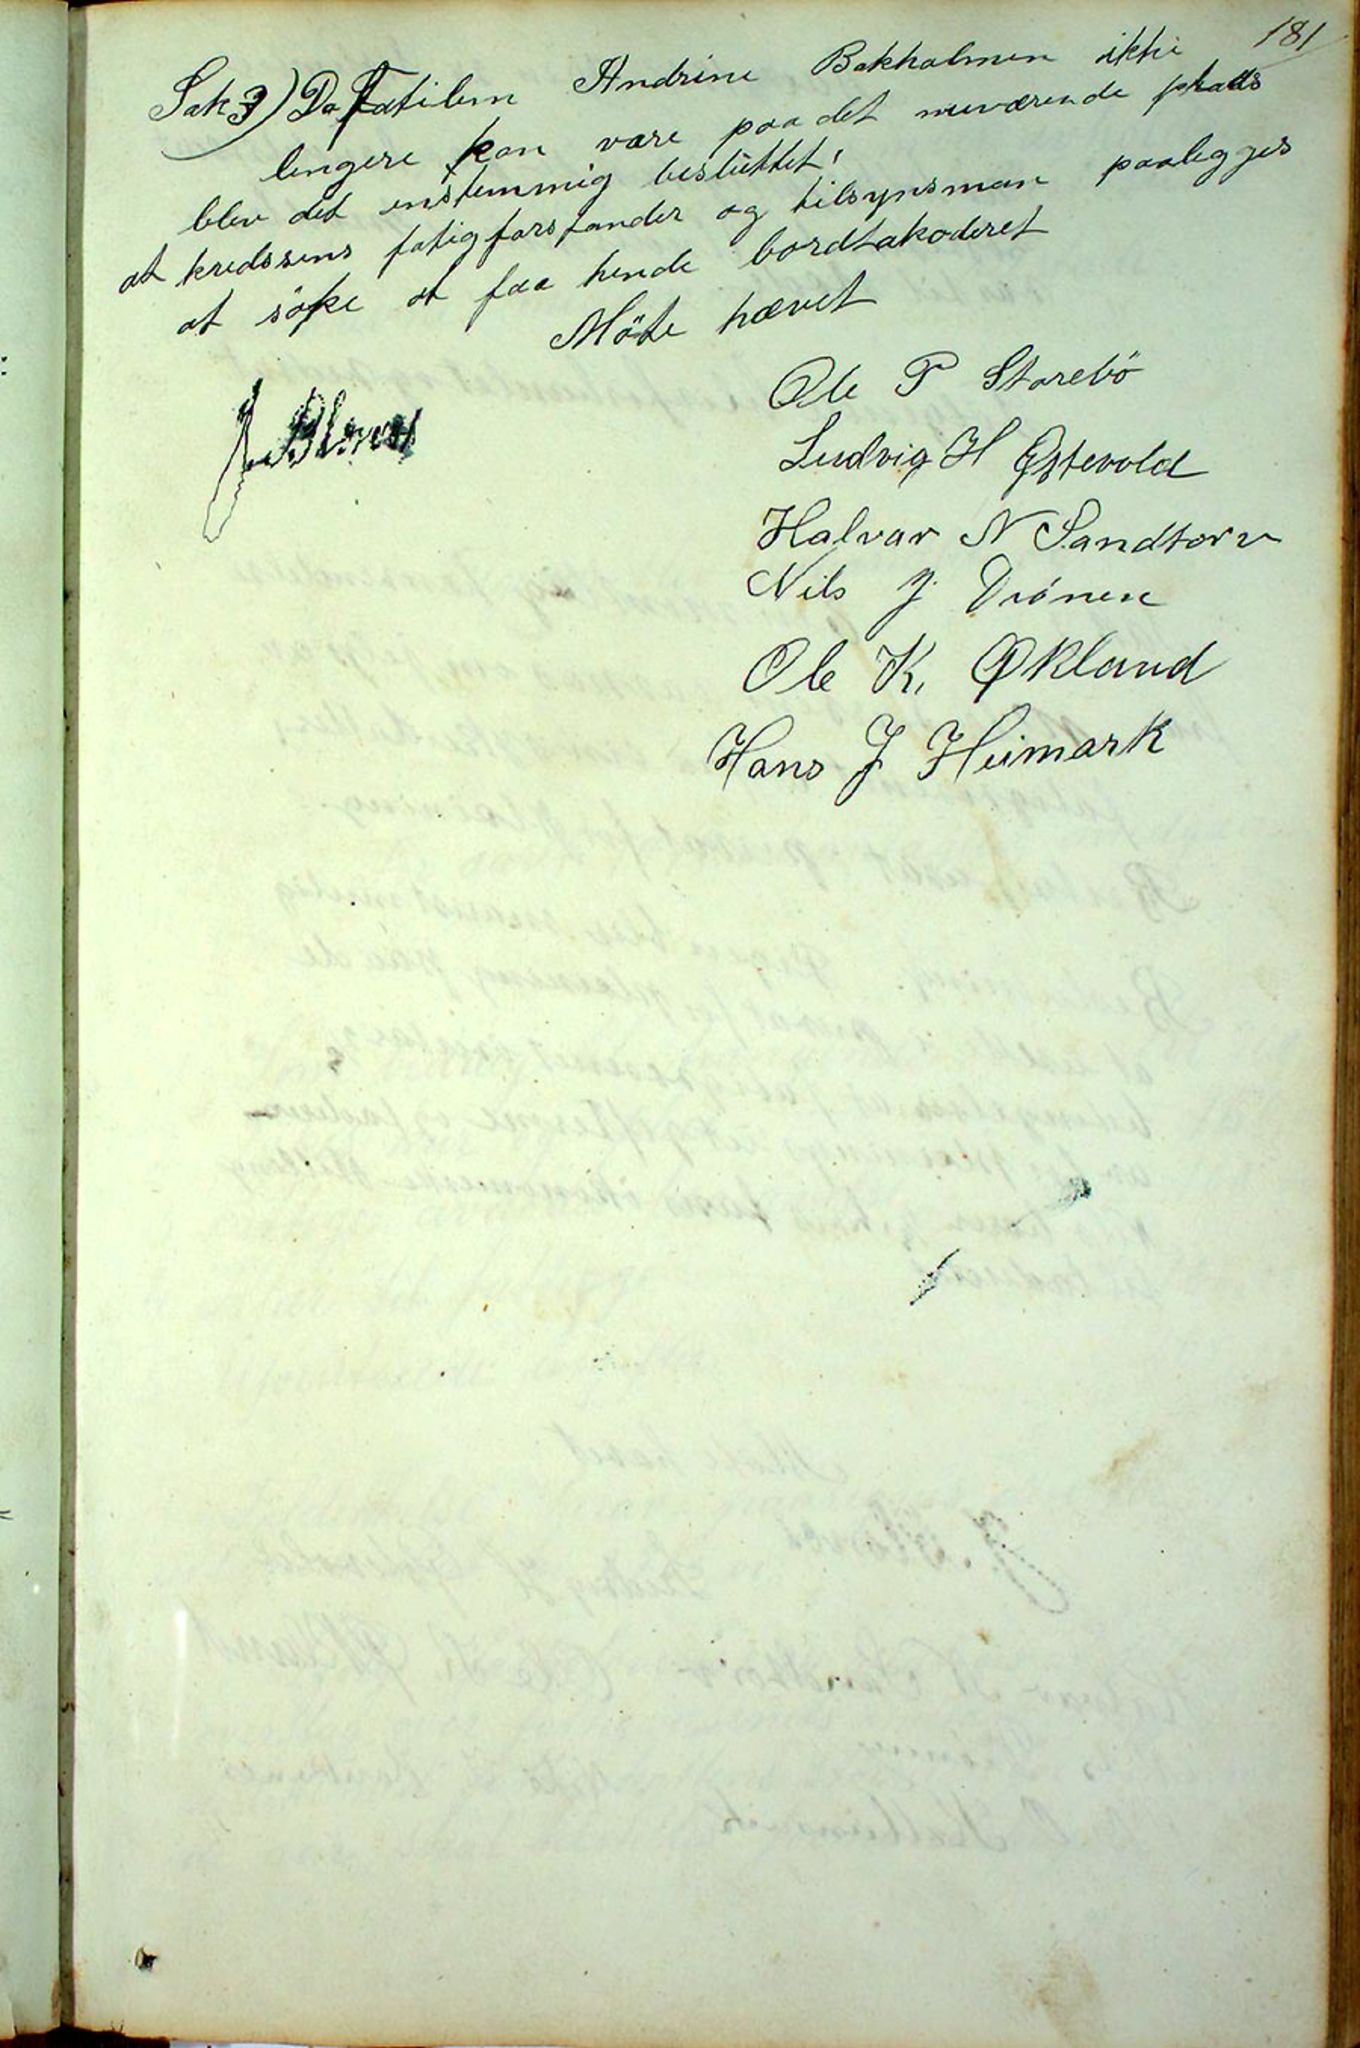 181
Sak 3) Da Fatilem Andrine Bakholmen ikke
lengere kan være paa det nuværende plads
blev det enstemmig besluttet:
at kredssens fatigforstander og tilsynsman paalegges
at søke at faa hende bordtakoderet
Möte hævet
Ole P Storebö
Ludvig H Østevold
Halvar N Sandtorv
Nils J. Drönen
Ole K. Økland
Hans J Heimark